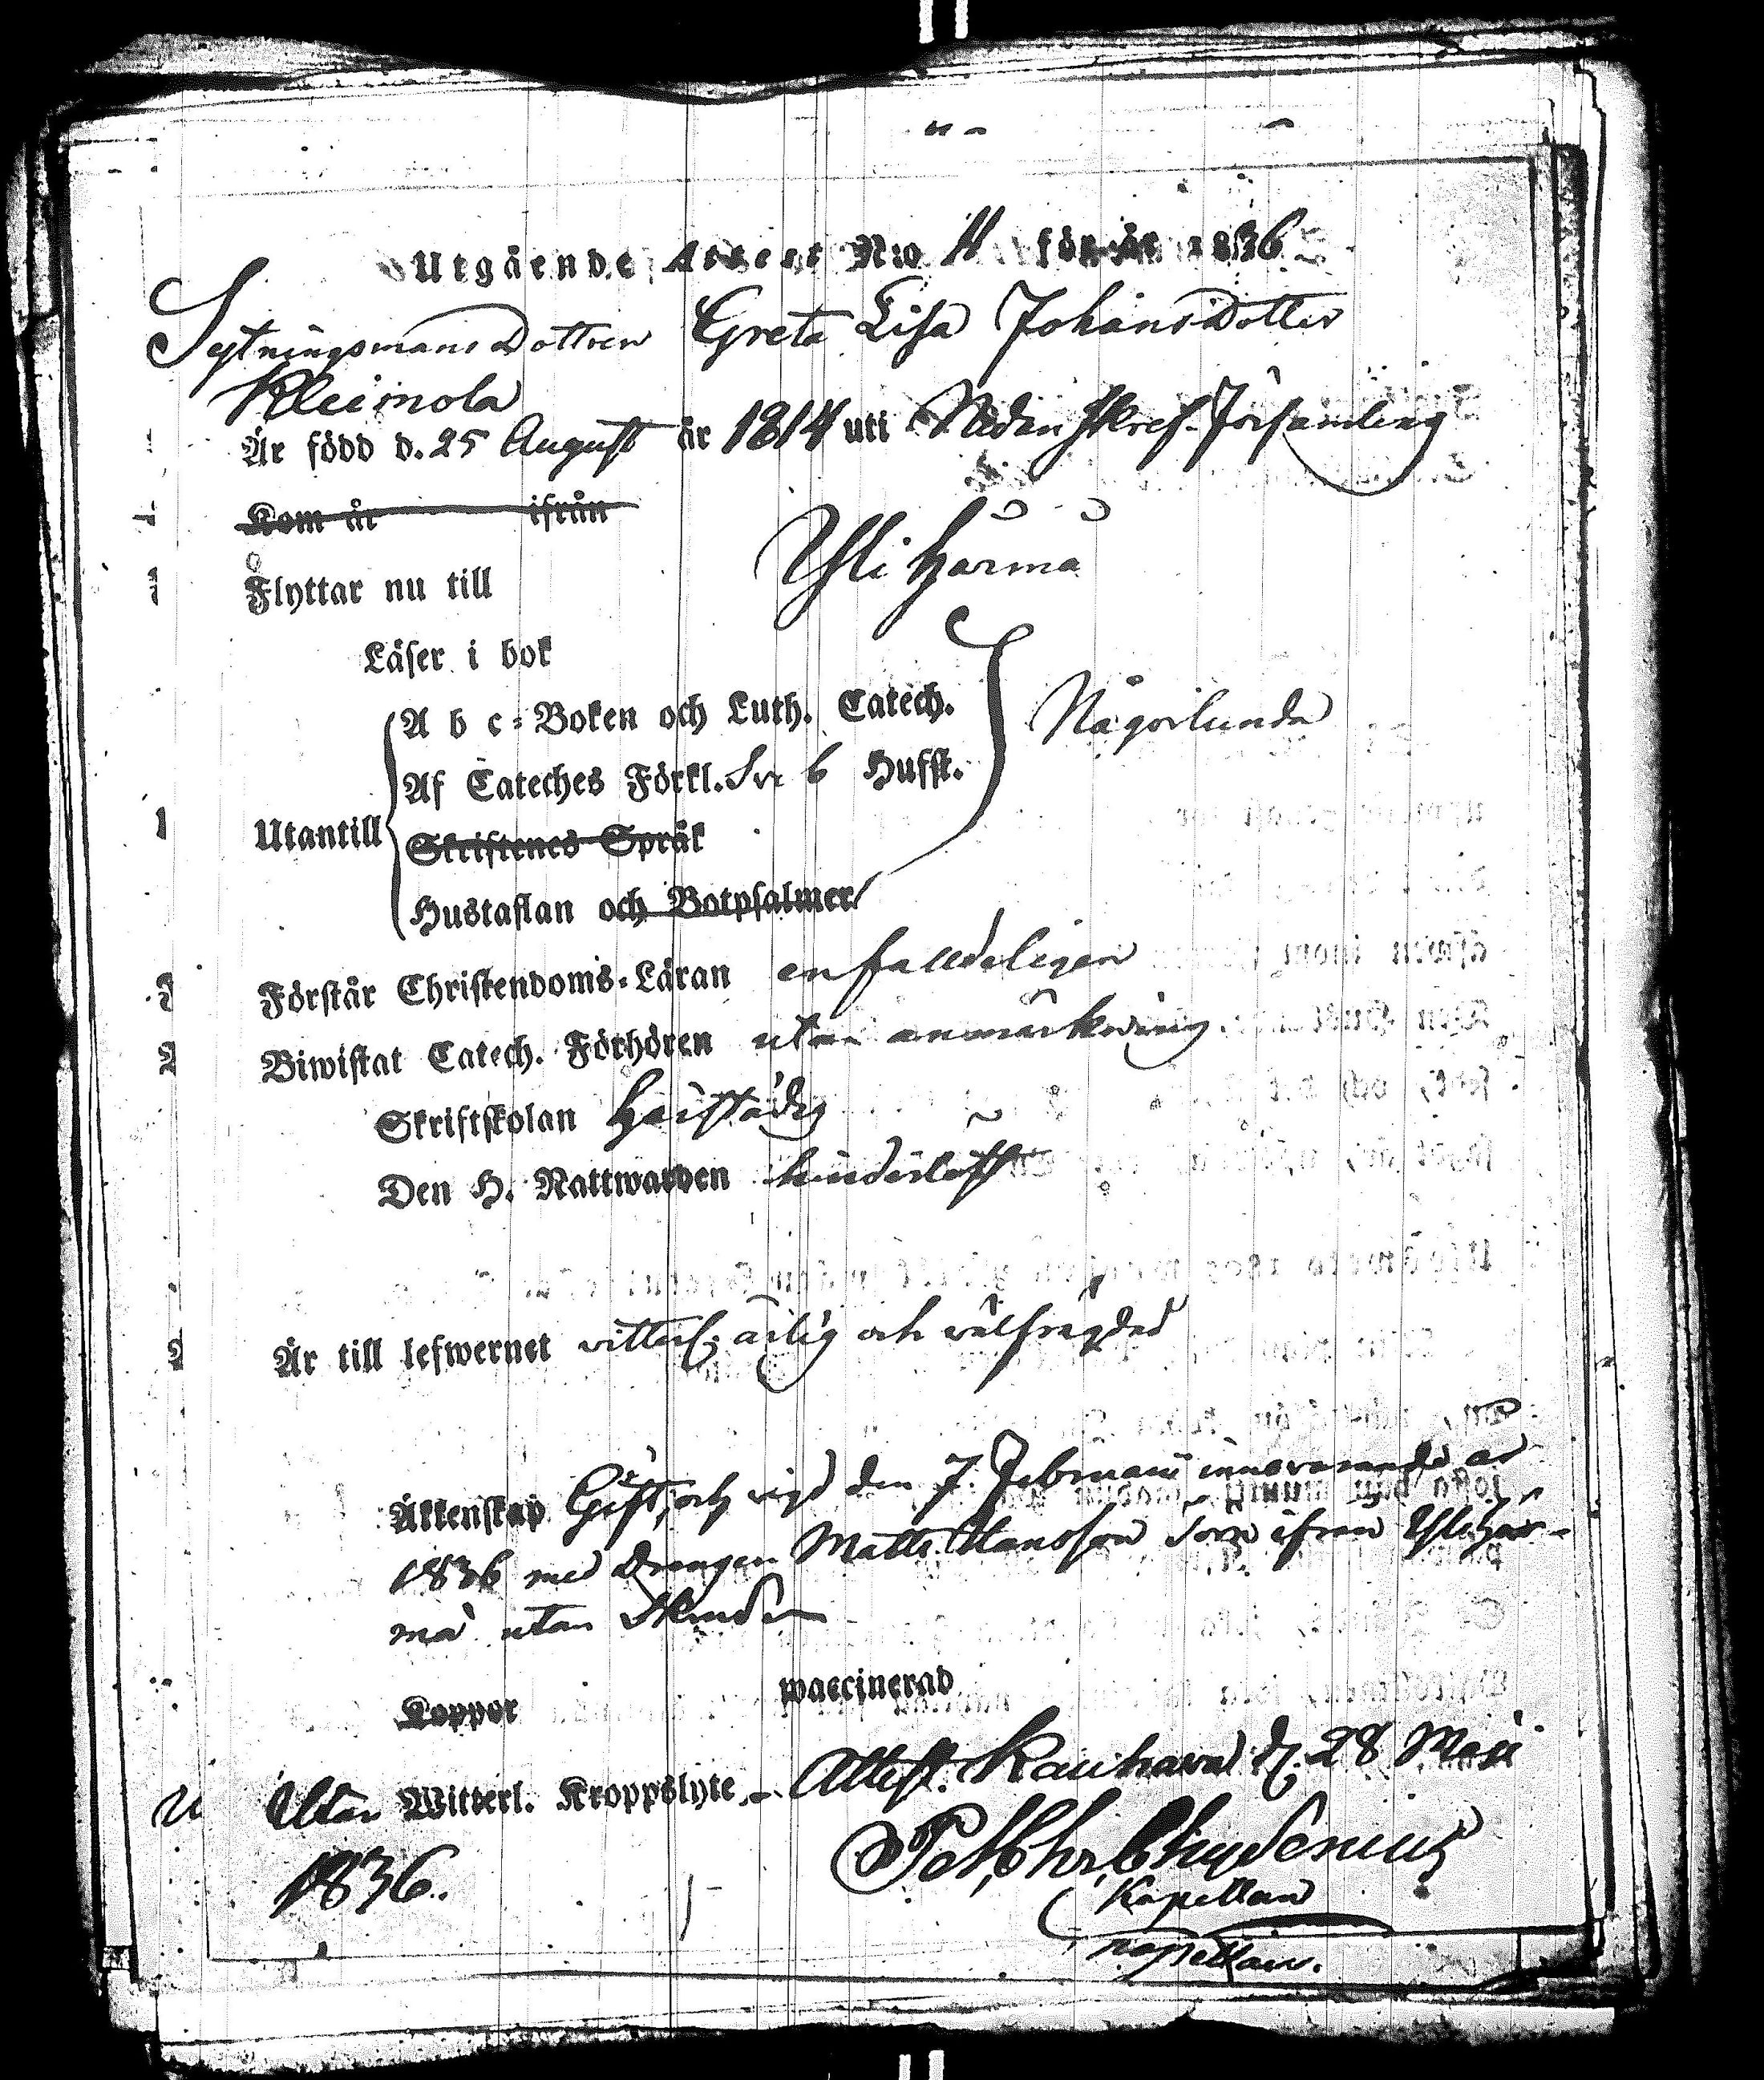 Utgående Attest N:o 11 för år 1836
Sytningsmans Dottren Greta Lisa Johans Dotter
Kleimola
Är född d. 25 August år 1814 uti Nedanskref. Församling
Kom år ifrån
Flyttar nu till Yli Härmä
Läser i bok
A b c-Boken och Luth. Catech. Någorlunda
Af Cateches Förkl. Sv. 6 Hufst.
Utantill
Skriftenes Språk
Hustaflan och Botpsalmer
Förstår Christendoms-Läran enfalldeligen
Biwistat Catech. Förhören utan anmärkning
Skriftskolan Härstädes
Den H. Nattwarden hinderlöst
Är till lefwernet vitterl. ärlig och välfrägdad
Äktenskap Gift, och vigd den 7 Februarii innevarande år
1836 med Drengen Matts Hansson ifrån Ylihär-
mä utan
Koppor waccinerad
Utan Witterl. Kroppslyte, - Attest. Kauhava d. 28 Maii
1836. Pet. Chr. Chydenius
Kapellan
Kapellan.